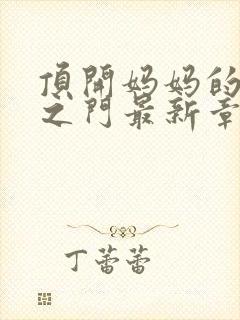 頂開妈妈的
之門最新章
丁蕾蕾